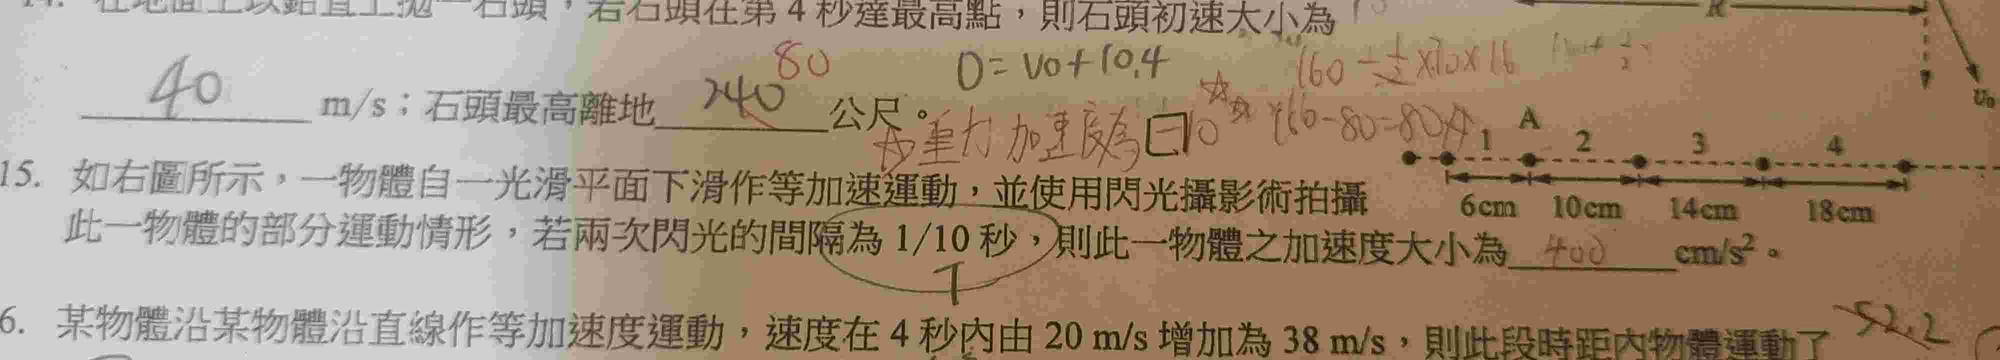 14. 在地面上以鉛直上拋一石頭，若石頭在第 4 秒達最高點，則石頭初速大小為
R
80
0=v0+10.4
160-½×10×16
40 m/s；石頭最高離地 240 公尺。
☆重力加速度為 -10
160-80=80
U₀
1 A 2 3 4
15. 如右圖所示，一物體自一光滑平面下滑作等加速運動，並使用閃光攝影術拍攝
6cm 10cm 14cm 18cm
此一物體的部分運動情形，若兩次閃光的間隔為 1/10 秒，則此一物體之加速度大小為 400 cm/s²。
T
6. 某物體沿某物體沿直線作等加速度運動，速度在 4 秒內由 20 m/s 增加為 38 m/s，則此段時距內物體運動了
52.2